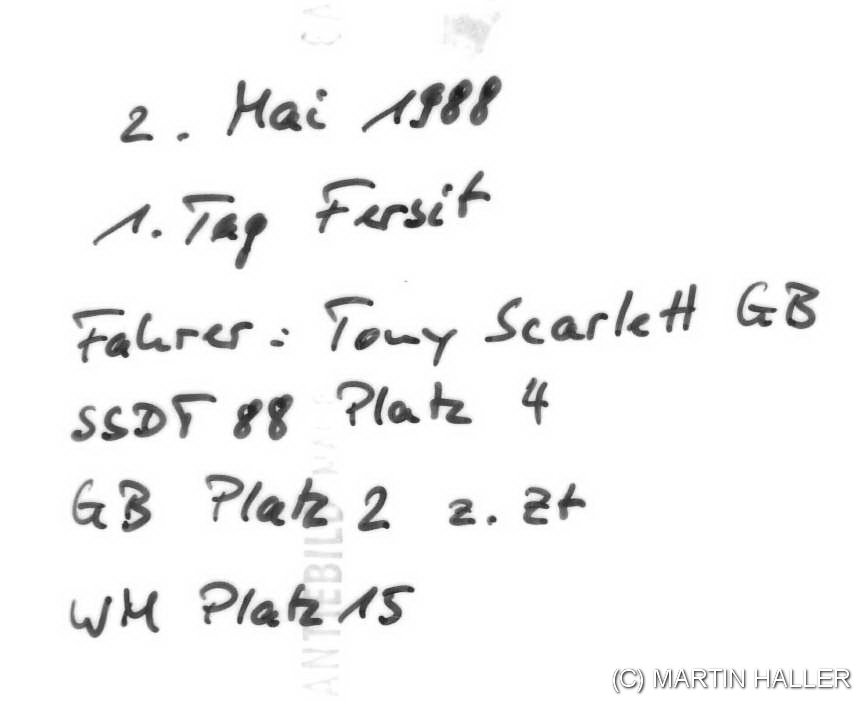 2. Mai 1988
1. Tag Fersit
Fahrer: Tony Scarlett GB
SSDT 88 Platz 4
GB Platz 2 z. Zt
WM Platz 15
(C) MARTIN HALLER